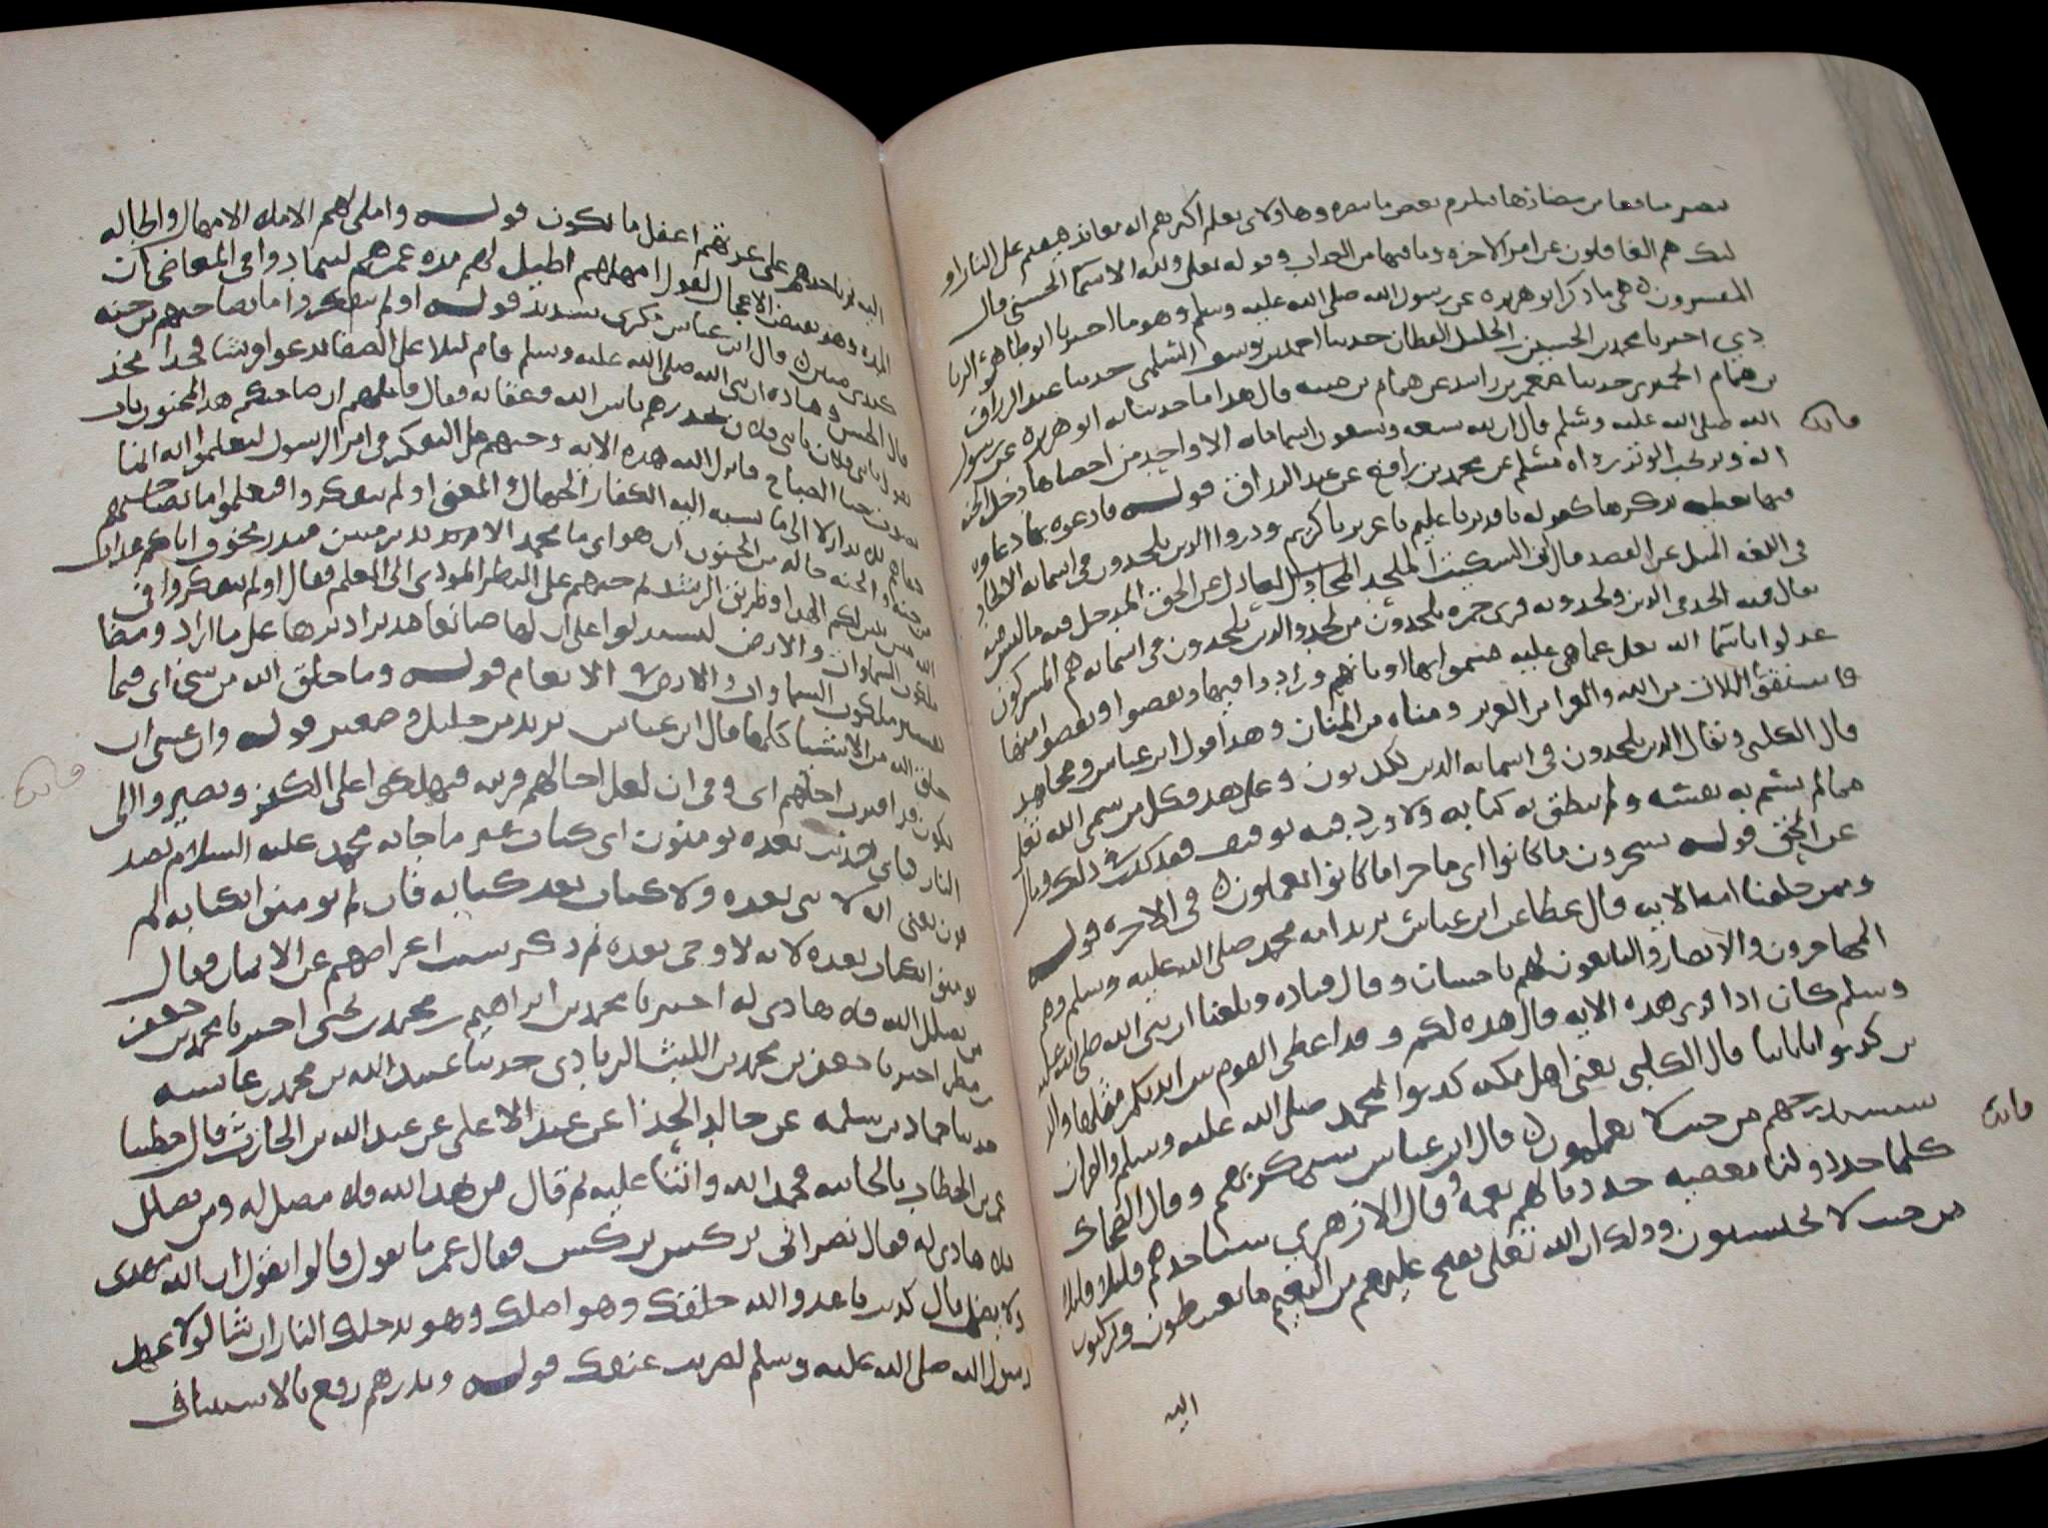 تبصر منافعها من مضارها فتلزم بعض ما تبصره وهاولاى يعلم اكثرهم انه معاند فيقدم على النار او
ليك هم الغافلون عن امر الاخره وما فيها من العذاب وقوله تعلى ولله الاسما الحسنى قال
المفسرون هى ما ذكر ابو هريره عن رسول الله صلى الله عليه وسلم وهو ما اخبرنا ابو طاهر الزيا
دي اخبرنا محمد بن الحسين الخليل القطان حدثنا احمد بن يوسف السلمى حدثنا عبد الرزاق
بن همام الحميرى حدثنا معمر بن راشد عن همام بن منبه قال هدا ما حدثنا به ابو هريرة عن رسول
الله صلى الله عليه وسلم قال ان لله تسعه وتسعون اسما مايه الا واحد من احصاها دخل الجنه
انه وتر يحب الوتر رواه مسلم عن محمد بن رافع عن عبد الرزاق قوله فادعوه بها دعاوه
فيها تعظيمه بذكرها كقوله يا قدير يا عليم يا عزيز يا كريم وذروا الذين يلحدون فى اسمائه الالحاد
فى اللغه الميل عن القصد قال ابن السكيت الملحد العادل عن الحق المدخل فيه ما ليس منه
يقال قد الحد فى الدين ولحد وبه قرى حمزه يلحدون من لحد والذين يلحدون فى اسمائه هم المشركون
عدلوا باسما الله تعلى عما هى عليه فسموا بها اوثانهم وزادوا فيها ونقصوا منها
فاستقوا اللات من الله والعزى من العزيز ومناه من المنان وهدا قول ابن عباس ومجاهد
قال الكلبى ويقال الذين يلحدون فى اسمائه الذين يكذبون وعلى هدا فكل من سمى الله تعلى
بما لم يتسم به نفسه ولم ينطق به كتابه ولا ورد فيه توقيف فقد كذب فى ذلك ومال
عن الحق قوله سيجزون ما كانوا اى ما جزا ما كانوا يعملون فى الاخره قوله
وممن خلقنا امه الايه قال عطا عن ابن عباس يريد امه محمد صلى الله عليه وسلم وهم
المهاجرون والانصار والتابعون لهم باحسان وقال قتاده وبلغنا ان نبى الله صلى الله عليه
وسلم كان اذا قرى هذه الايه قال هذه لكم وقد اعطى القوم بين ايديكم مثلها والذ
ين كذبوا باياتنا قال الكلبى يعنى اهل مكه كذبوا بمحمد صلى الله عليه وسلم والقران
سنستدرجهم من حيث لا يعلمون قال ابن عباس سنمكر بهم وقال الضحاك
كلما جددوا لنا معصيه جددنا لهم نعمه وقال الازهري سناخذهم قليلا قليلا
من حيث لا يحتسبون وذلك ان الله تعلى يفتح عليهم من النعيم ما يغتبطون ويركنون
اليه
اليه ثم ياخذهم على غرتهم اغفل ما يكون قوله واملى لهم الاملا الامهال والاطاله
المده وهو نقيض الاعجال يقول امهلهم اطيل لهم مده عمرهم ليتمادوا فى المعاصى ان
كيدى متين قال ابن عباس مكرى شديد قوله اولم يتفكروا ما بصاحبهم من جنه
قال الحسن وقتاده ان نبى الله صلى الله عليه وسلم قام ليلا على الصفا يدعو قريشا فخذا فخذ
يقول يا بنى فلان يا بنى فلان يحذرهم باس الله وعقابه فقال قايلهم ان صاحبكم هذا لمجنون بات
يصوت حتى الصباح فانزل الله هذه الايه وحثهم على التفكر فى امر الرسول ليعلموا انه انما
دعاهم لله نذيرا لا الى ما نسبه اليه الكفار الجهال والمعنى اولم يتفكروا فيعلموا ما بصاحبهم
من جنه والجنه حاله من الجنون ان هو اى ما محمد الا نذير مبين منذر مخوف اياكم عذاب
الله مبين يبين لكم الهدا وطريق الرشد ثم حثهم على النظر المودى الى العلم فقال اولم يتفكروا فى
ملكوت السماوات والارض ليستدلوا على ان لها صانعا مدبرا دبرها على ما اراد ومضا
تفسير ملكوت السماوات والارض فى الانعام قوله وما خلق الله من شى اى فيما
خلق الله من الاشيا كلها قال ابن عباس يريد من جليل وصغير قوله وان عسى ان
يكون قد اقترب اجلهم اى وفى ان لعل اجالهم قريبه فيهلكوا على الكفر ويصيروا الى
النار فباى حديث بعده يومنون اى كتاب غير ما جا به محمد عليه السلام يصد
قون يعنى انه لا نبى بعده ولا كتاب بعد كتابه فان لم يومنوا بكتابه لم
يومنوا بكتاب بعده لانه لا وحى بعده ثم ذكر سبب اعراضهم عن الايمان فقال
من يضلل الله فلا هادى له اخبرنا محمد بن ابراهيم بن محمد بن يحيى اخبرنا محمد بن جعفر
بن مطر اخبرنا جعفر بن محمد بن الليث الزيادى حدثنا عبيد الله بن محمد بن عائشه
حدثنا حماد بن سلمه عن خالد الحذا عن عبد الاعلى عن عبد الله بن الحارث قال خطبنا
عمر بن الخطاب بالجابيه فحمد الله واثنا عليه ثم قال من يهد الله فلا مضل له ومن يضلل
فلا هادى له فقال نصرانى بركس بركس فقال عمر ما يقول قالوا يقول ان الله يهدى
ولا يضل فقال كذبت يا عدو الله خلقك وهو اضلك وهو يدخلك النار ان شا لولا عهد
رسول الله صلى الله عليه وسلم لضربت عنقك قوله ويذرهم رفع بالاستيناف